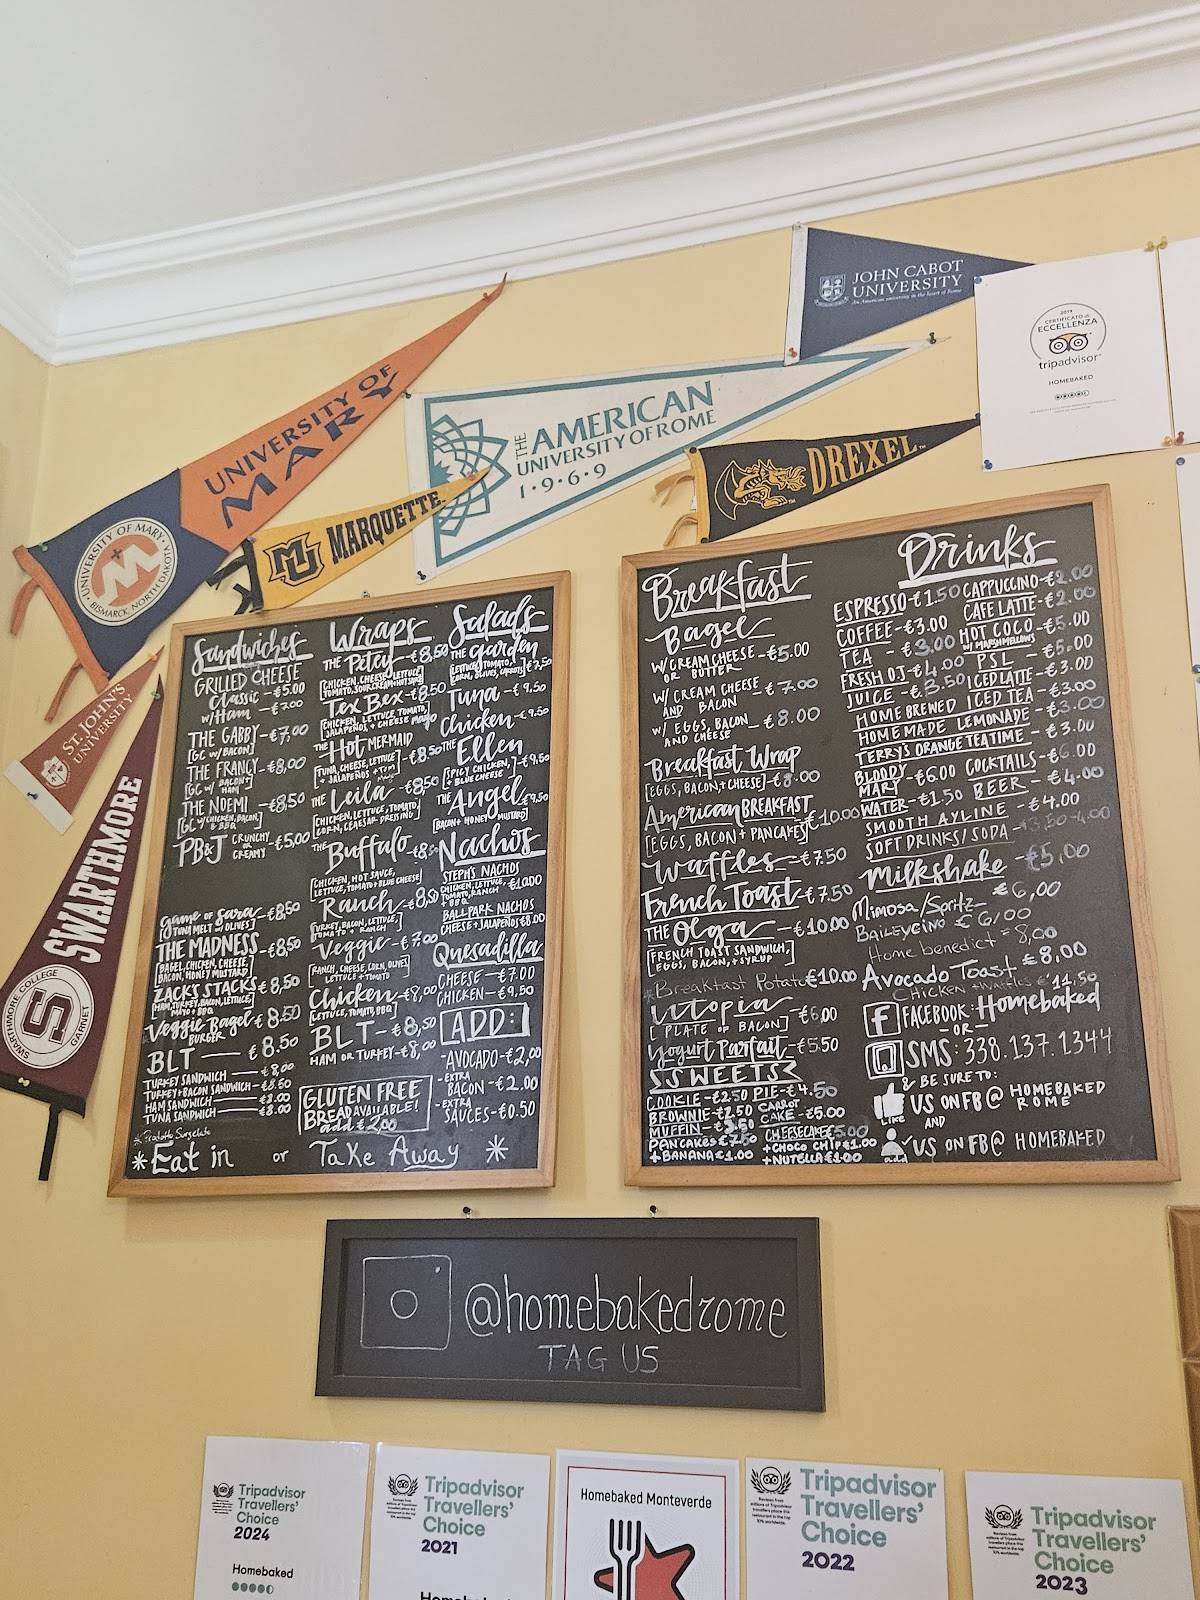 JOHN CABOT
UNIVERSITY
An American university in the heart of Rome
2019
CERTIFICATO di
ECCELLENZA
tripadvisor
HOMEBAKED
UNIVERSITY OF
MARY
UNIVERSITY OF MARY
M
BISMARCK, NORTH DAKOTA
THE AMERICAN
UNIVERSITY OF ROME
1·9·6·9
MU
MARQUETTE
DREXEL
ST. JOHN'S
UNIVERSITY
SWARTHMORE
S
SWARTHMORE COLLEGE
GARNET
Sandwiches
GRILLED CHEESE
Classic - €5.00
w/Ham - €7.00
THE GABBY - €7,00
[GC W/ BACON]
THE FRANCY - €8,00
[GC W/ BACON
HAM]
THE NOEMI - €8,50
[GC W/ CHICKEN, BACON,
& BBQ]
PB&J CRUNCHY OR CREAMY - €5,00
game of Sara - €8,50
[TUNA MELT W/ OLIVES]
THE MADNESS - €8,50
[BAGEL, CHICKEN, CHEESE,
BACON, HONEY MUSTARD]
ZACKS STACKS - €8,50
[HAM, TURKEY, BACON, LETTUCE,
MAYO + BBQ]
Veggie Bagel - € 8.50
BURGER
BLT — € 8.50
TURKEY SANDWICH — €8,00
TURKEY+BACON SANDWICH - €8.50
HAM SANDWICH — €8.00
TUNA SANDWICH — €8.00
Wraps
THE Petey - €8,50
[CHICKEN, CHEESE, LETTUCE
TOMATO, SOUR CREAM + HOT SAUCE]
Tex Bex - €8,50
[CHICKEN, LETTUCE TOMATO,
JALAPENOS + CHEESE mayo]
THE Hot MERMAID - €8,50
[TUNA, CHEESE, LETTUCE
+ JALAPENOS +
THE Leila - €8,50
[CHICKEN, LETTUCE, TOMATO,
CORN, CEAESAR DRESSING]
THE Buffalo - €8,50
[CHICKEN, HOT SAUCE,
LETTUCE, TOMATO + BLUE CHEESE]
Ranch - €8,50
[TURKEY, BACON, LETTUCE,
TOMATO + RANCH]
Veggie - €7.00
[RANCH, CHEESE, CORN, OLIVES
LETTUCE + TOMATO]
Chicken - €8,00
[LETTUCE, TOMATO, BBQ]
BLT - €8,50
HAM OR TURKEY - €8,00
GLUTEN FREE
BREAD AVAILABLE!
add € 2,00
Salads
THE garden
[LETTUCE, TOMATO,
CORN, OLIVES, CARROTS] €7,50
Tuna - € 9,50
Chicken - € 9.50
THE Ellen
[SPICY CHICKEN,
+ BLUE CHEESE] - €9,50
THE Angel €9,50
[BACON + HONEY MUSTARD]
Nachos
STEPH'S NACHOS
CHICKEN, LETTUCE,
TOMATO, RANCH
+ BBQ €10.00
BALLPARK NACHOS
CHEESE + JALAPENOS €8.00
Quesadilla
CHEESE - €7.00
CHICKEN - €9.50
ADD:
-AVOCADO - €2,00
-EXTRA
BACON - €2.00
-EXTRA
SAUCES - €0.50
* Prodotto Surgelato
* Eat in or Take Away *
Breakfast
Bagel
W/ CREAM CHEESE - €5.00
OR BUTTER
W/ CREAM CHEESE - € 7.00
AND BACON
W/ EGGS, BACON - € 8.00
AND CHEESE
Breakfast Wrap
[EGGS, BACON + CHEESE] - €8.00
American BREAKFAST
[EGGS, BACON + PANCAKES] €10.00
Waffles - €7.50
French Toast - €7,50
THE Olga - €10.00
[FRENCH TOAST SANDWICH,
EGGS, BACON, + SYRUP]
*Breakfast Potato €10.00
Utopia - €6,00
[PLATE OF BACON]
Yogurt Parfait - €5.50
SWEETS
COOKIE - €2.50 PIE - €4.50
BROWNIE - €2.50 CABOT
MUFFIN - €3.50 CAKE - €5.00
PANCAKES €7.50 CHEESECAKE 5.00
+ BANANA €1.00 + CHOCO CHIP €1.00
+ NUTELLA €1.00
Drinks
ESPRESSO - €1.50 CAPPUCCINO - €2.00
COFFEE - €3.00 CAFE LATTE - €2.00
TEA - €3.00 HOT COCO - €5.00
W/ MARSHMELLOWS
FRESH O.J - €4.00 PSL - €5.00
JUICE - €3.50 ICED LATTE - €3.00
HOME BREWED ICED TEA - €3.00
HOME MADE LEMONADE - €3.00
TERRY'S ORANGE TEA TIME - € 3.00
BLOODY
MARY - €6.00 COCKTAILS - €6.00
WATER - €1.50 BEER - €4.00
SMOOTH AYLINE - €4.00
SOFT DRINKS/SODA - €3,50-4.00
Milkshake - €5,00
Mimosa/Spritz - € 6,00
BAILEYCINO € 6/00
Home benedict = 8,00
Avocado Toast - €8,00
CHICKEN + Waffles €11,50
f FACEBOOK: Homebaked
-OR-
SMS: 338.137.1344
& BE SURE TO:
LIKE US ON FB @ HOMEBAKED
ROME
AND
add US ON FB @ HOMEBAKED
@homebakedrome
TAG US
Tripadvisor
Travellers'
Choice
2024
Homebaked
Tripadvisor
Travellers'
Choice
2021
Homebaked Monteverde
Tripadvisor
Travellers'
Choice
2022
Tripadvisor
Travellers'
Choice
2023